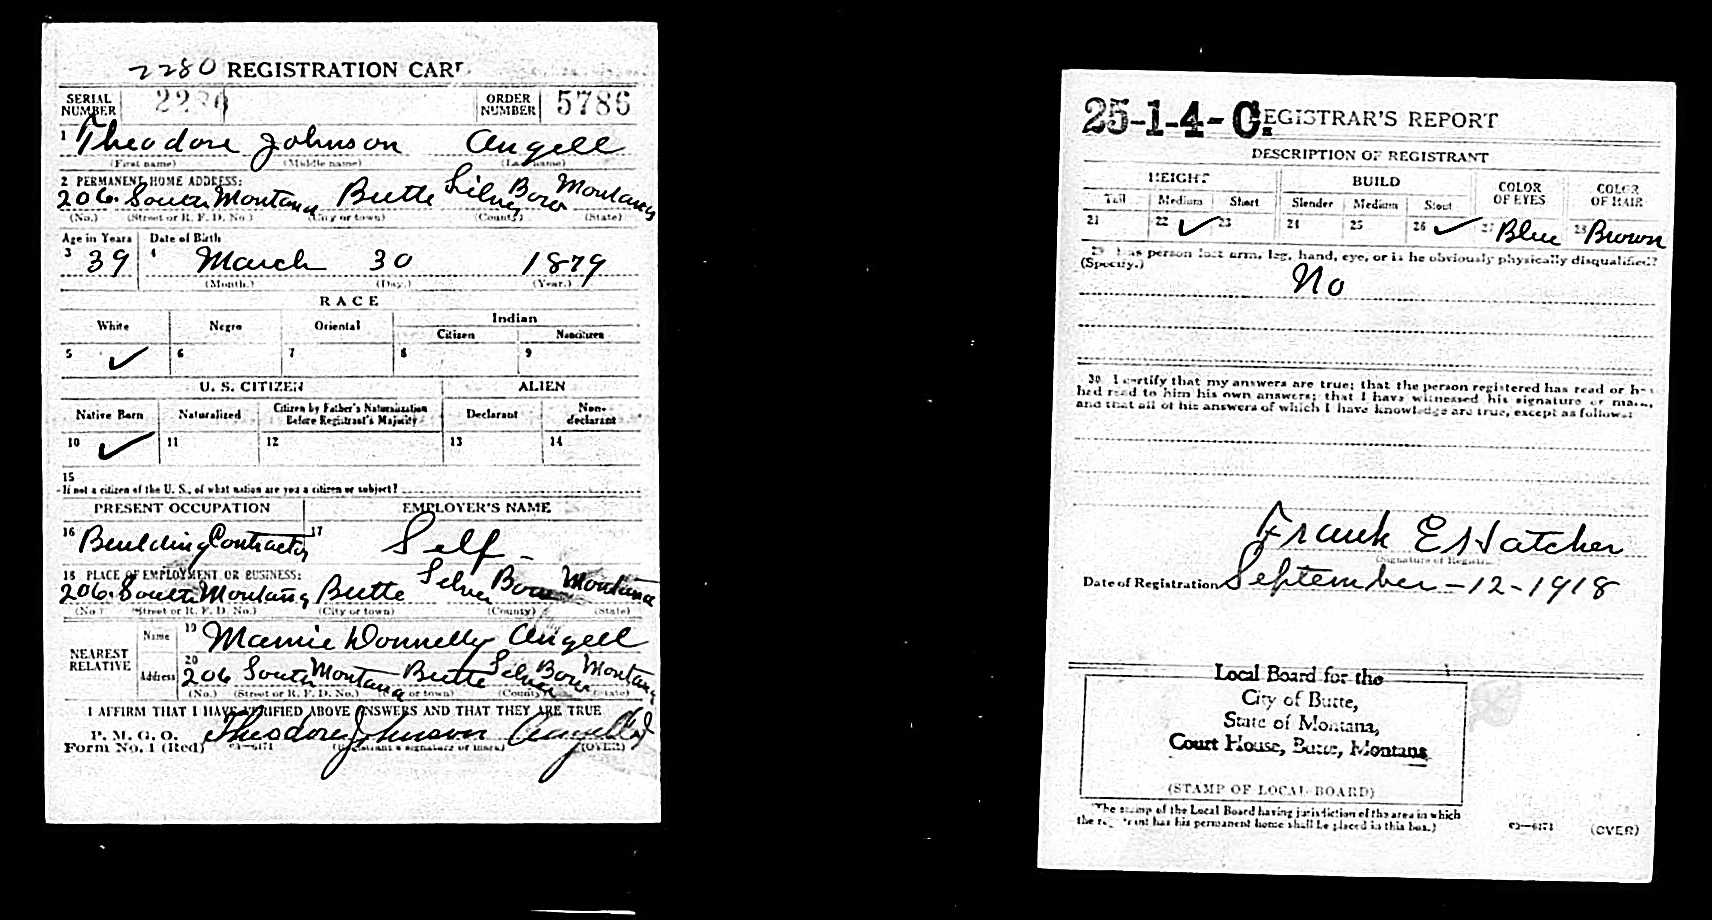 2280 REGISTRATION CARD
SERIAL NUMBER 2280 ORDER NUMBER 5786
1 Theodore Johnson Angell
(First name) (Middle name) (Last name)
2 PERMANENT HOME ADDRESS:
206 South Montana Butte Silver Bow Montana
(No.) (Street or R. F. D. No.) (City or town) (County) (State)
Age in Years Date of Birth
3 39 4 March 30 1879
(Month.) (Day.) (Year.)
RACE
White Negro Oriental Indian
Citizen Noncitizen
5 ✓ 6 7 8 9
U. S. CITIZEN ALIEN
Native Born Naturalized Citizen by Father's Naturalization Before Registrant's Majority Declarant Non-declarant
10 ✓ 11 12 13 14
15
If not a citizen of the U. S., of what nation are you a citizen or subject?
PRESENT OCCUPATION EMPLOYER'S NAME
16 Building Contractor 17 Self -
18 PLACE OF EMPLOYMENT OR BUSINESS:
206 South Montana Butte Silver Bow Montana
(No.) (Street or R. F. D. No.) (City or town) (County) (State)
NEAREST RELATIVE
Name 19 Mamie Donnelly Angell
Address 20 206 South Montana Butte Silver Bow Montana
(No.) (Street or R. F. D. No.) (City or town) (County) (State)
I AFFIRM THAT I HAVE VERIFIED ABOVE ANSWERS AND THAT THEY ARE TRUE
P. M. G. O.
Form No. 1 (Red) 03—6171 Theodore Johnson Angell
(Registrant's signature or mark) (OVER)
25-1-4-C. REGISTRAR'S REPORT
DESCRIPTION OF REGISTRANT
HEIGHT BUILD COLOR OF EYES COLOR OF HAIR
Tall Medium Short Slender Medium Stout
21 22 ✓ 23 24 25 26 ✓ 27 Blue 28 Brown
29 Has person lost arm, leg, hand, eye, or is he obviously physically disqualified?
(Specify.)
No
30 I certify that my answers are true; that the person registered has read or has
had read to him his own answers; that I have witnessed his signature or mark,
and that all of his answers of which I have knowledge are true, except as follows:
Frank E Hatcher
(Signature of Registrar)
Date of Registration September - 12 - 1918
Local Board for the
City of Butte,
State of Montana,
Court House, Butte, Montana
(STAMP OF LOCAL BOARD)
(The stamp of the Local Board having jurisdiction of the area in which
the registrant has his permanent home shall be placed in this box.)
03—6171 (OVER)